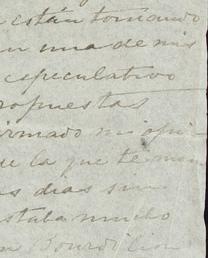 están tomando
una de mis
especulativo
ropuestas
irmado mi opi-
ue la que te man
as dias sin
staba mucho
n Bourdillon